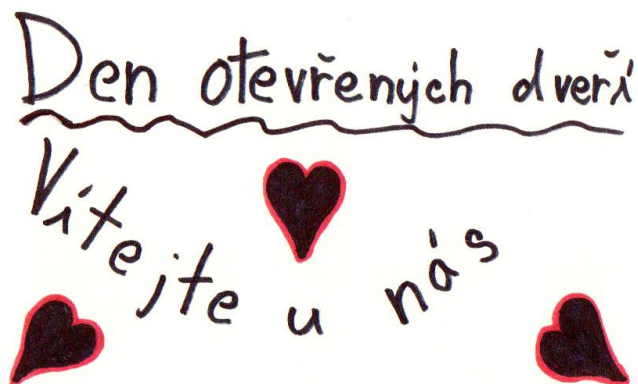 Den otevřených dveří
Vítejte u nás